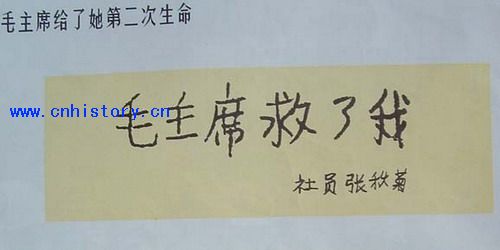 毛主席给了她第二次生命
www.cnhistory.cn
毛主席救了我
社员张秋菊